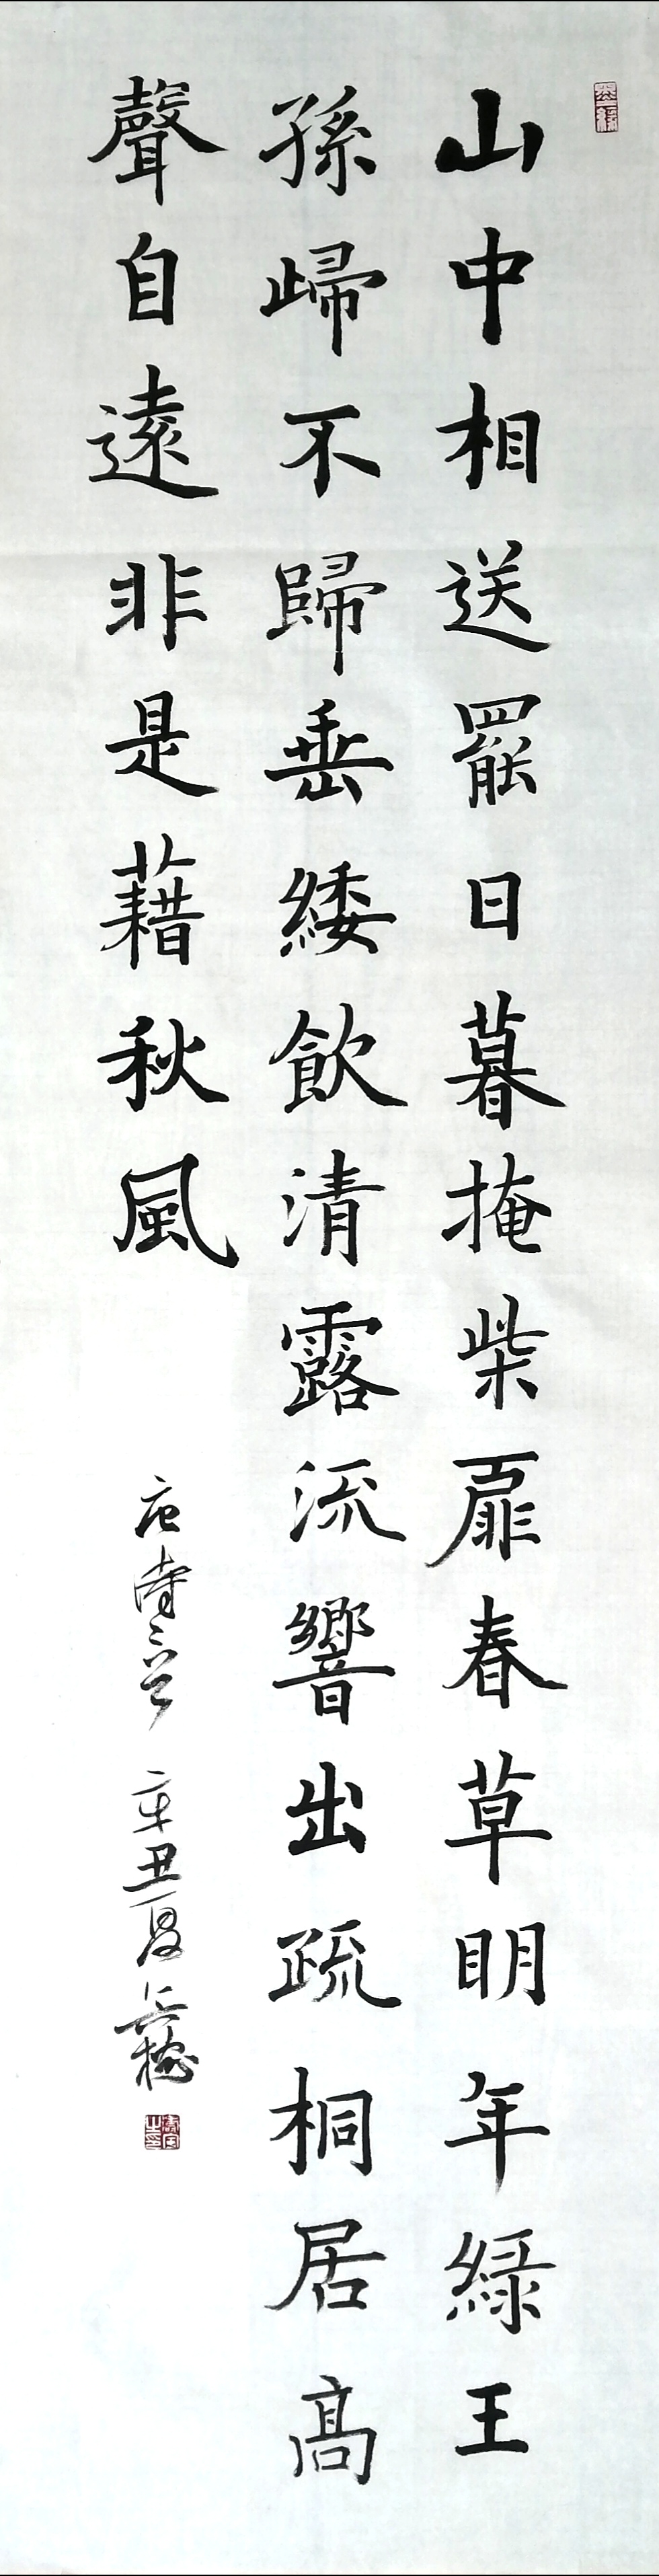 山中相送罷日暮掩柴扉春草眀年綠王
孫㱕不歸垂緌飲清露流響出疏桐居高
聲自遠非是藉秋風
唐詩三首 辛丑夏